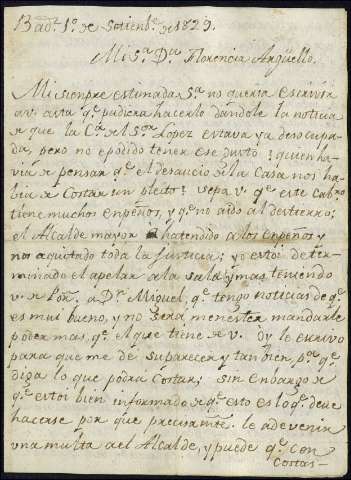 Badz. 1º. de Setienbe. de 1829.
Mi Sa. Da. Florencia Argüello.
Mi sienpre estimada Sa. no queria escrivir
a v. asta qe. pudiera hacerlo dandole la noticia
de que la Ca. del Sor. Lopez estava ya desocupa-
da, pero no e podido tener ese Gusto; quien ha-
via de pensar qe. el desaucio de la Casa nos ha-
bia de Costar un pleito; sepa v. qe. este Cabro
tiene muchos enpeños, y qe. no a ido al destierro;
el Alcalde mayor a hatendido a los enpeños y
nos a quitado toda la Justicia; yo estoi deter-
minado el apelar a la sala, y mas teniendo
v. de Por. a Dn. Miguel, qe. tengo noticias de qe.
es mui bueno, y no será menester mandarle
poder mas, qe. el que tiene de v. oy le escrivo
para que me de su parecer y tanbien pa. qe.
diga lo que podrá Costar; sin enbargo de
qe. estoi bien informado de qe. esto es lo qe. deve
hacerse por que precisamte. le a de venir
una multa a el Alcalde, y puede qe. con
Costas-